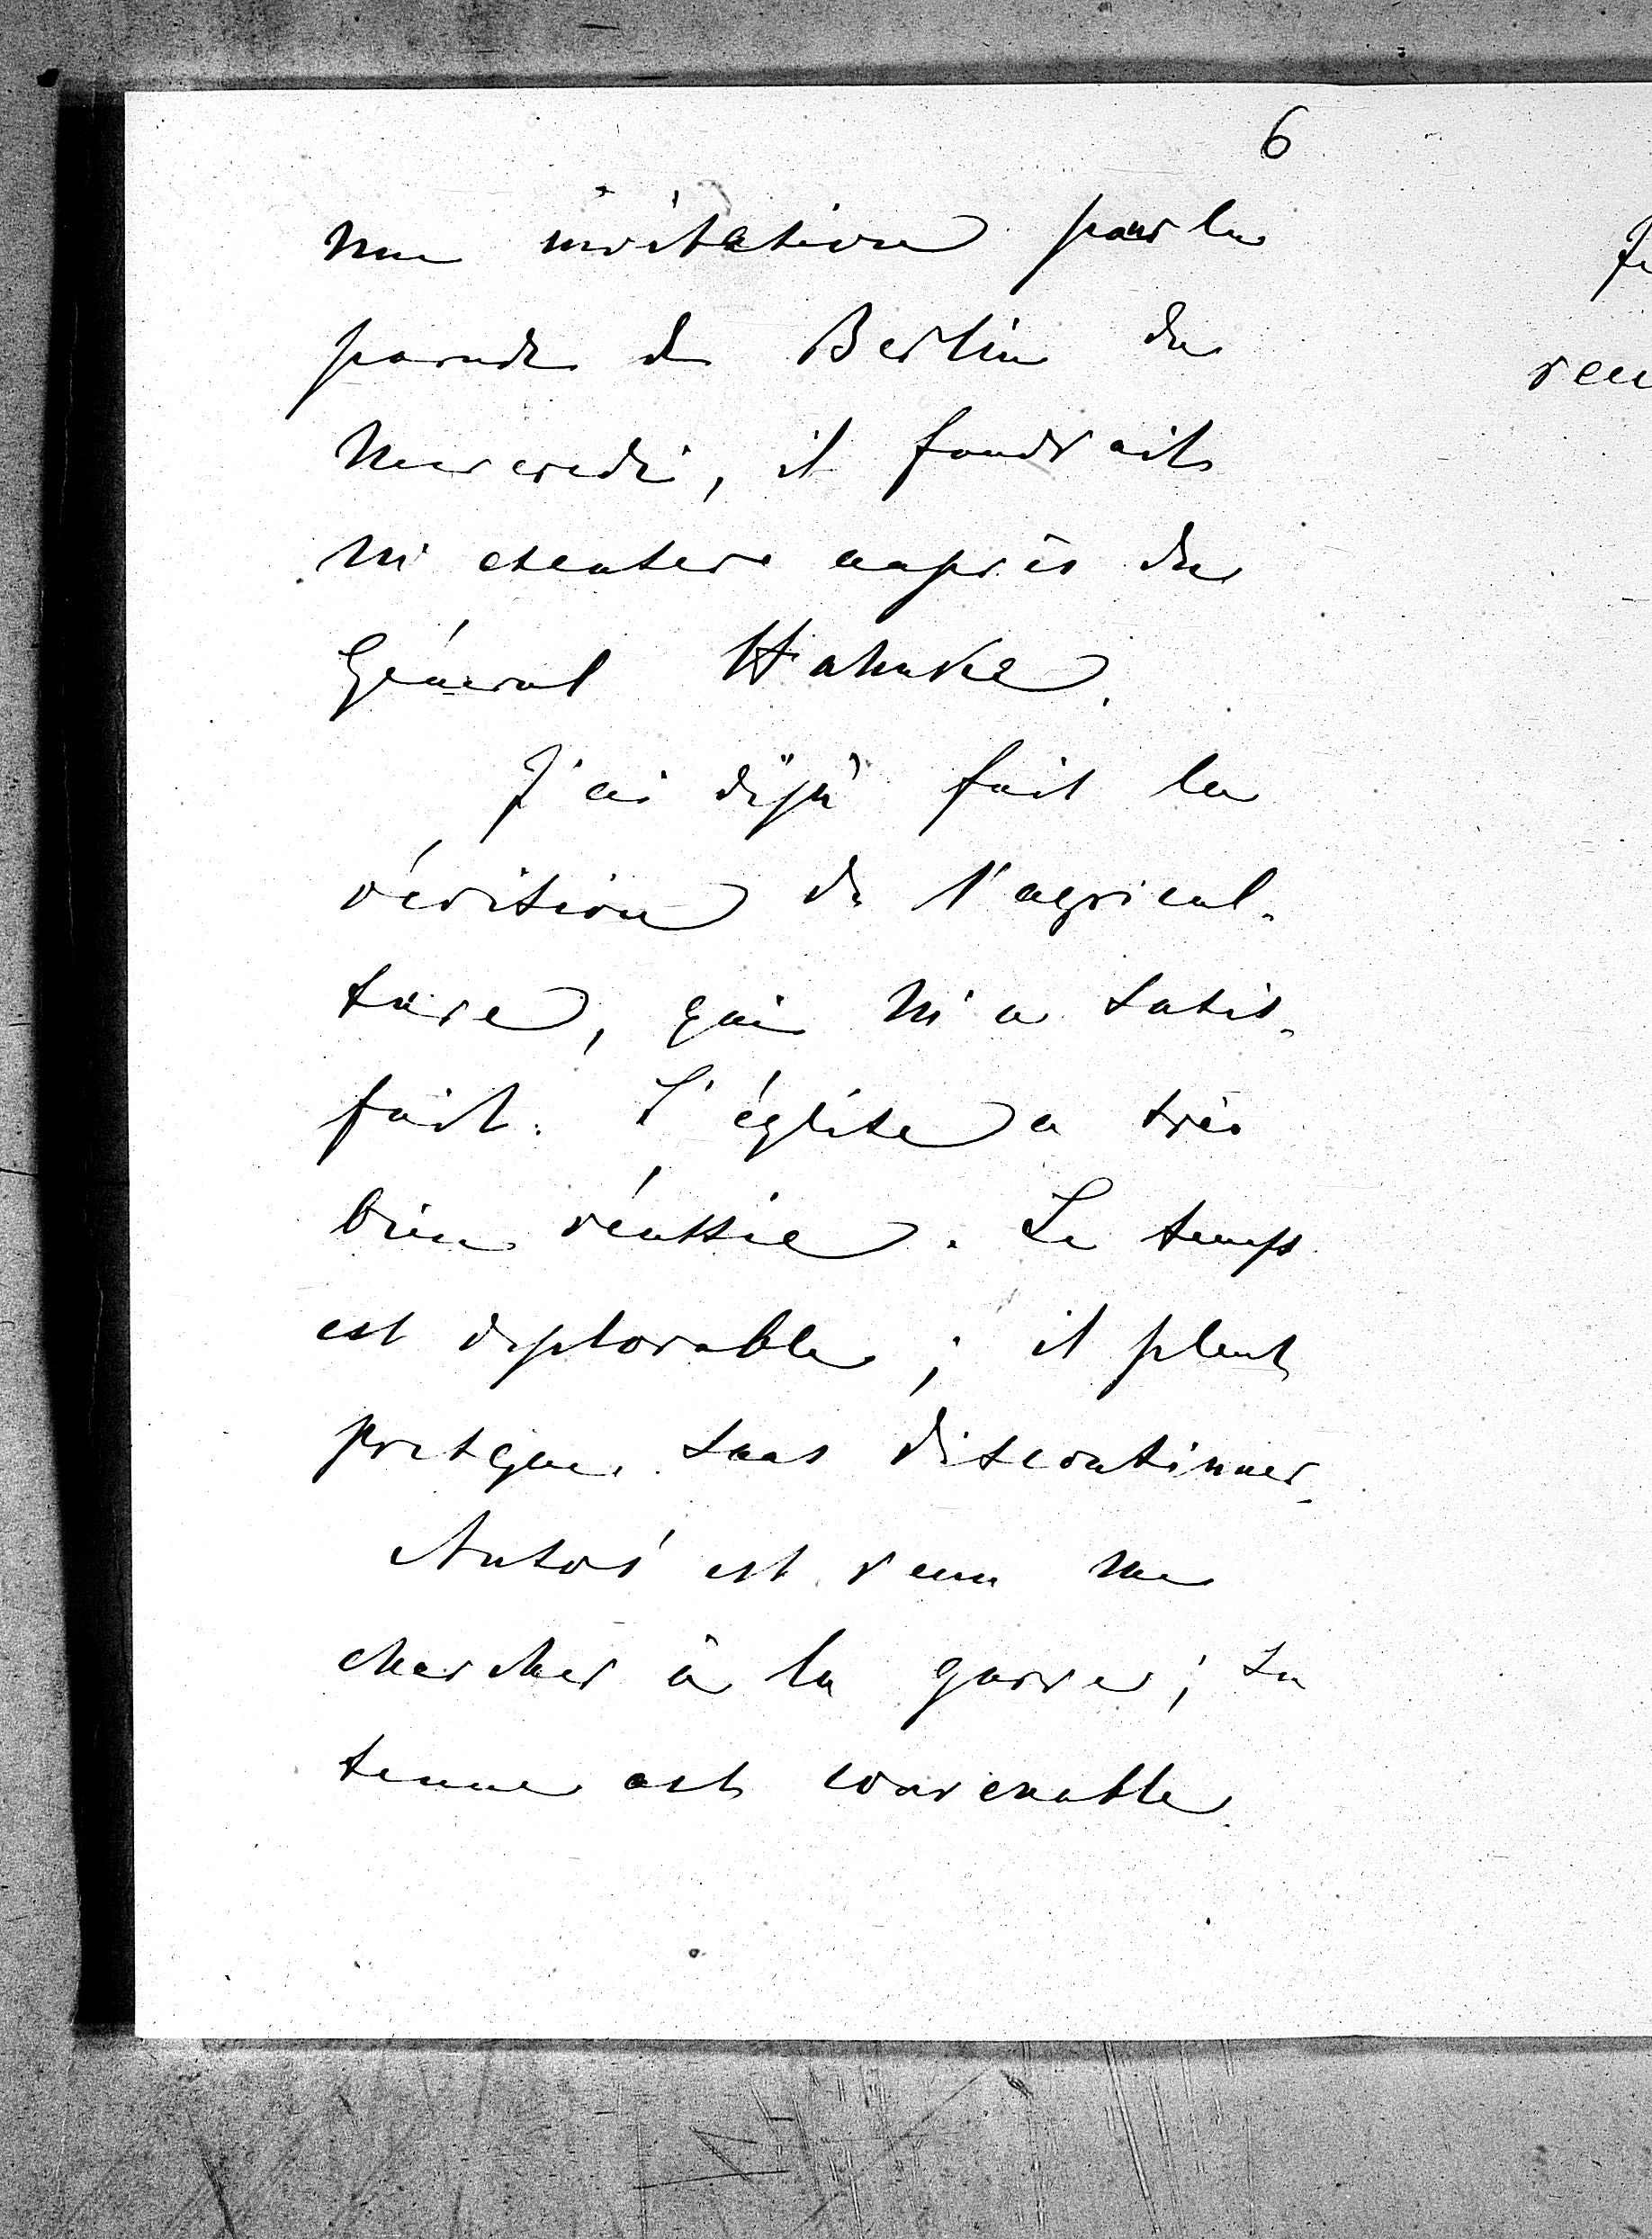 6
une invitation pour la
parade de Berlin du
Mercredi, il faudrait
m'excuser auprès du
Général Hahnke.
J'ai déjà fait la
révision de l'agricul-
ture, qui m'a satis-
fait. L'église a très
bien réussie. Le temps
est déplorable; il pleut
presque sans discontinuer.
est venu me
chercher à la garre; sa
tenue est convenable.